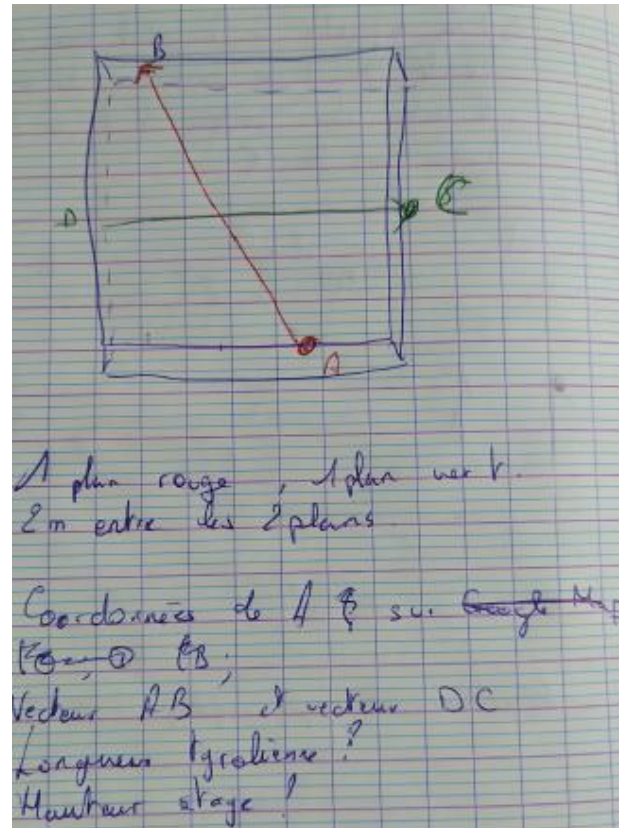 B
D
C
A
1 plan rouge, 1 plan vert.
2m entre les 2 plans
Coordonnées de A sur Google Map
B;
Vecteur AB et vecteur DC
Longueur tyrolienne ?
Hauteur étage !